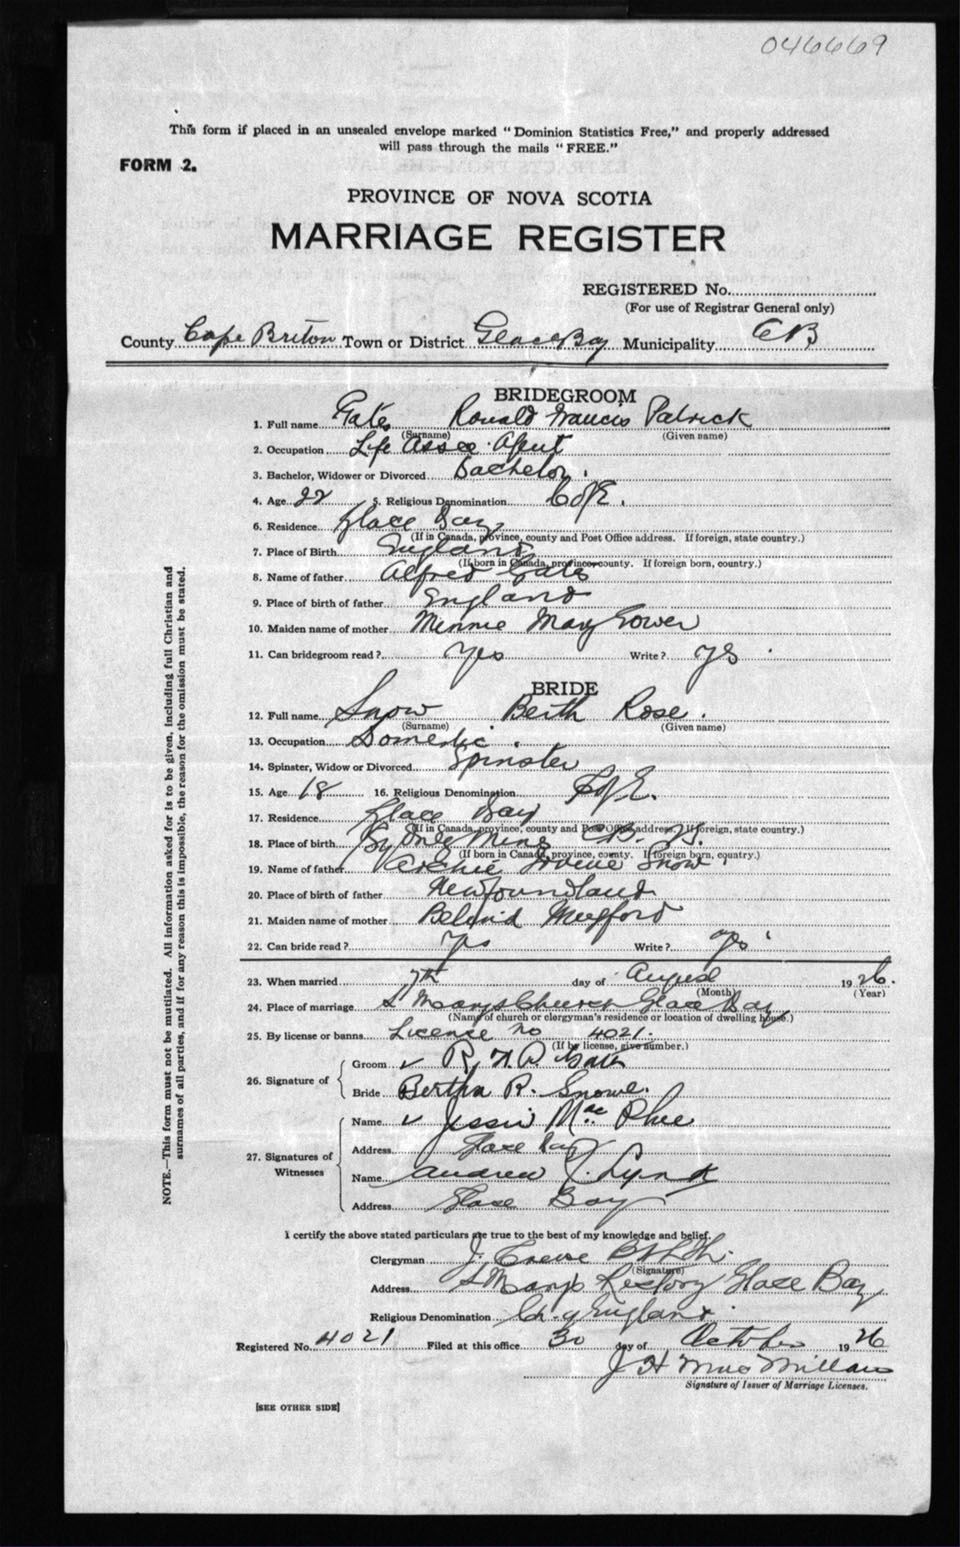 046669
This form if placed in an unsealed envelope marked "Dominion Statistics Free," and properly addressed
will pass through the mails "FREE."
FORM 2.
PROVINCE OF NOVA SCOTIA
MARRIAGE REGISTER
REGISTERED No.
(For use of Registrar General only)
County Cape Briton Town or District Glace Bay Municipality CB
BRIDEGROOM
1. Full name Gates Ronald Francis Patrick
(Surname) (Given name)
2. Occupation Life Assce Agent
3. Bachelor, Widower or Divorced Bachelor.
4. Age 22 5. Religious Denomination C of E.
6. Residence Glace Bay
(If in Canada, province, county and Post Office address. If foreign, state country.)
7. Place of Birth England
(If born in Canada, province, county. If foreign born, country.)
8. Name of father Alfred Gates
9. Place of birth of father England
10. Maiden name of mother Minnie May Gower
11. Can bridegroom read? Yes Write? Yes
BRIDE
12. Full name Snow Berth Rose.
(Surname) (Given name)
13. Occupation Domestic.
14. Spinster, Widow or Divorced Spinster
15. Age 18 16. Religious Denomination C of E.
17. Residence Glace Bay
(If in Canada, province, county and Post Office address. If foreign, state country.)
18. Place of birth Sydney Mines C.B. N.S.
(If born in Canada, province, county. If foreign born, country.)
19. Name of father Archie Snow
20. Place of birth of father Newfoundland
21. Maiden name of mother Belind Mugford
22. Can bride read? Yes Write? Yes
23. When married 7th day of August 1926.
(Month) (Year)
24. Place of marriage St Marys Church Glace Bay
(Name of church or clergyman's residence or location of dwelling house.)
25. By license or banns Licence no 4021.
(If by license, give number.)
26. Signature of
Groom R. F. P. Gates
Bride Bertha R. Snow.
27. Signatures of Witnesses
Name Jessie Mac Phee
Address Glace Bay
Name Andrew J. Lynk
Address Glace Bay
I certify the above stated particulars are true to the best of my knowledge and belief.
Clergyman J. Crewe
(Signature)
Address St Marys Rectory Glace Bay
Religious Denomination Ch. of England.
Registered No. 4021 Filed at this office 30 day of October 1926
J H MacMillan
Signature of Issuer of Marriage Licenses.
[SEE OTHER SIDE]
NOTE.—This form must not be mutilated. All information asked for is to be given, including full Christian and
surnames of all parties, and if for any reason this is impossible, the reason for the omission must be stated.